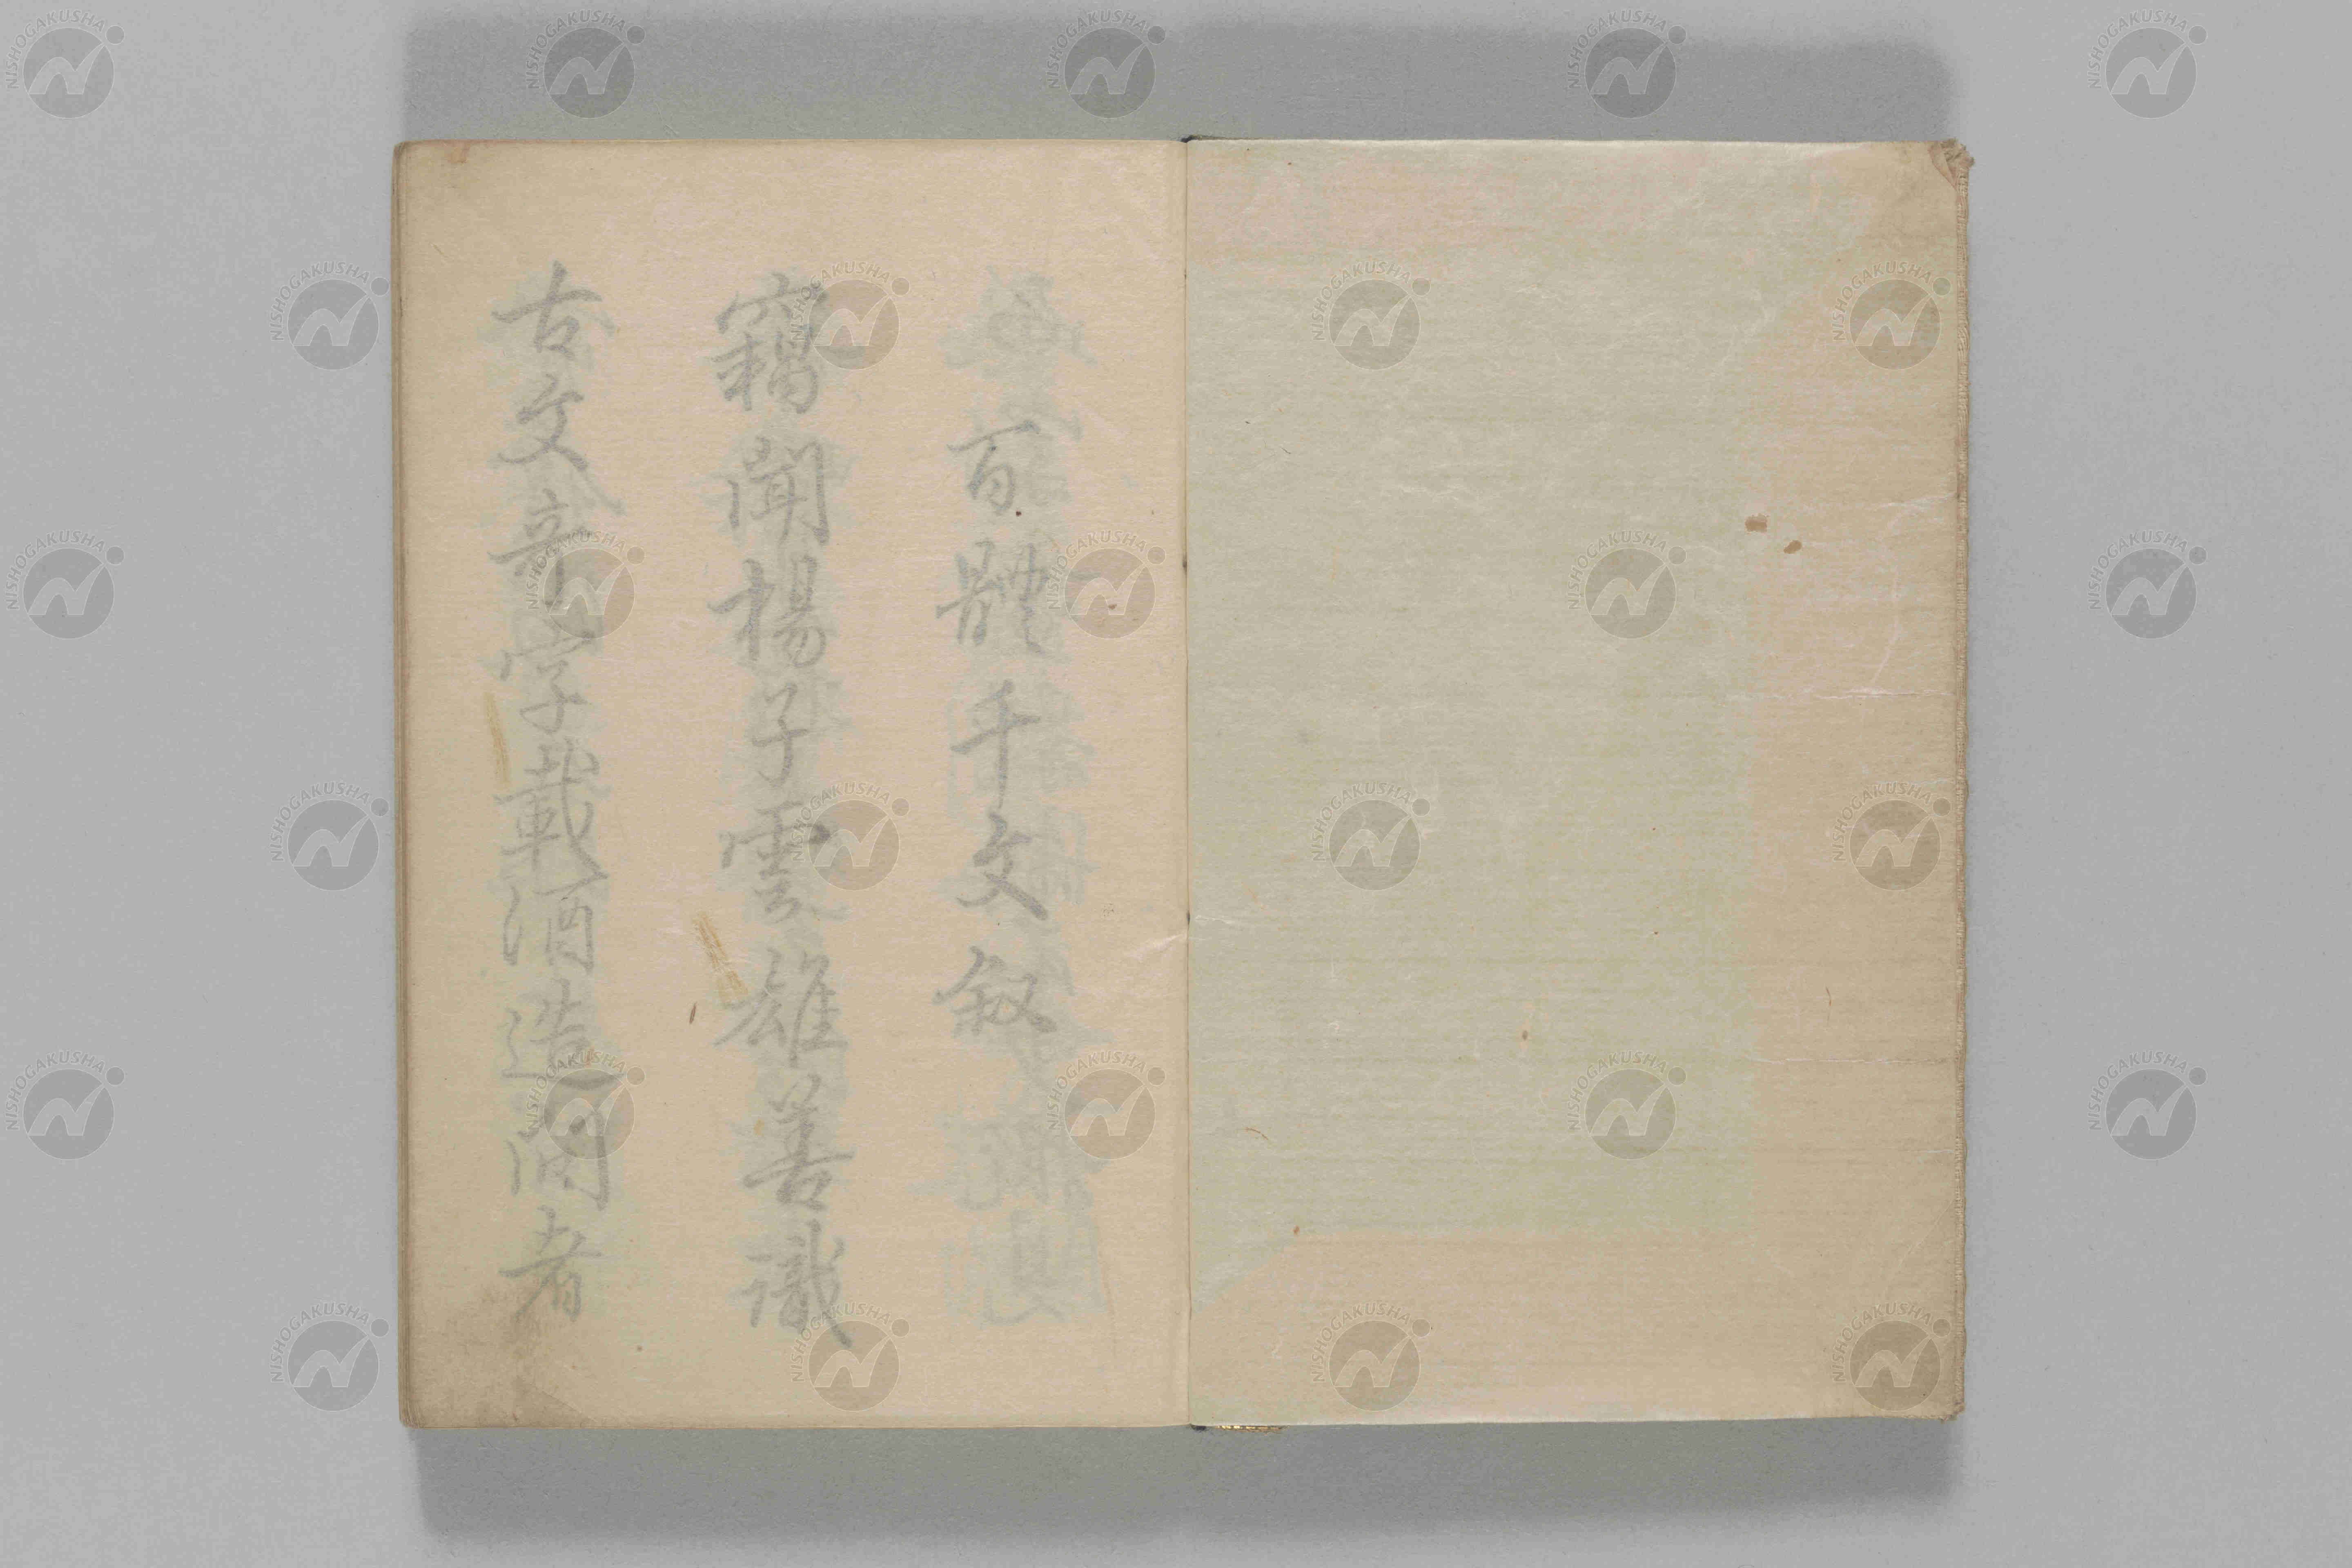 百體千文叙
竊聞楊子雲雄善識
古文竒字載酒造問者
NISHOGAKUSHA